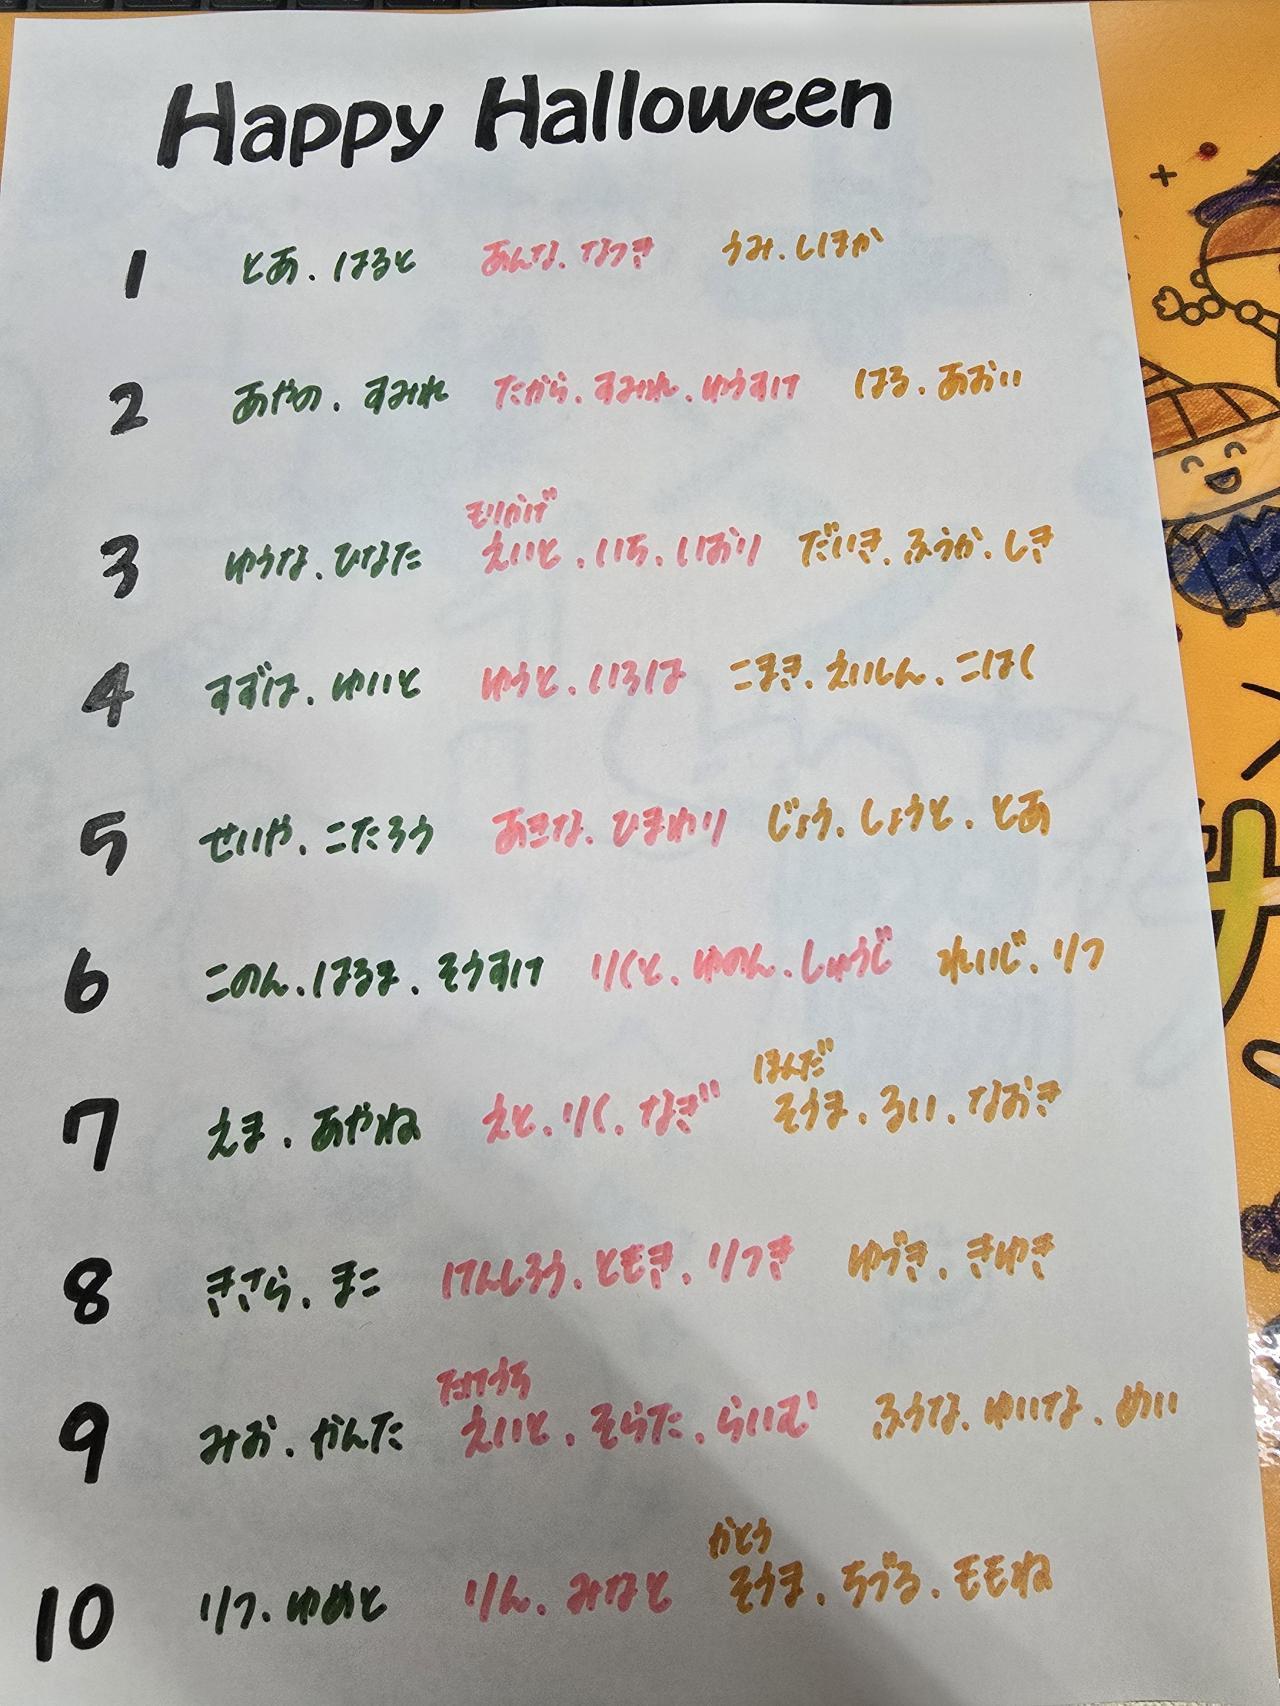 Happy Halloween
1 とあ、はると あんな、なつき うみ、しほか
2 あやの、すみれ たから、すみれ、ゆうすけ はる、あおい
もりかげ
3 ゆうな、ひなた えいと、いち、いおり だいき、ふうか、しき
4 すずは、ゆいと ゆうと、いろは こまき、えいしん、こはく
5 せいや、こたろう あきな、ひまわり じょう、しょうと、とあ
6 このん、はるま、そうすけ りくと、ゆのん、しゅうじ れいじ、りつ
ほんだ
7 えま、あやね えと、りく、なぎ そうま、るい、なおき
8 きさら、まこ けんしろう、ともき、りつき ゆづき、きゆき
たけうち
9 みお、かんた えいと、そらた、らいむ ふうな、ゆいな、めい
かとう
10 りつ、ゆめと りん、みなと そうま、ちづる、ももね